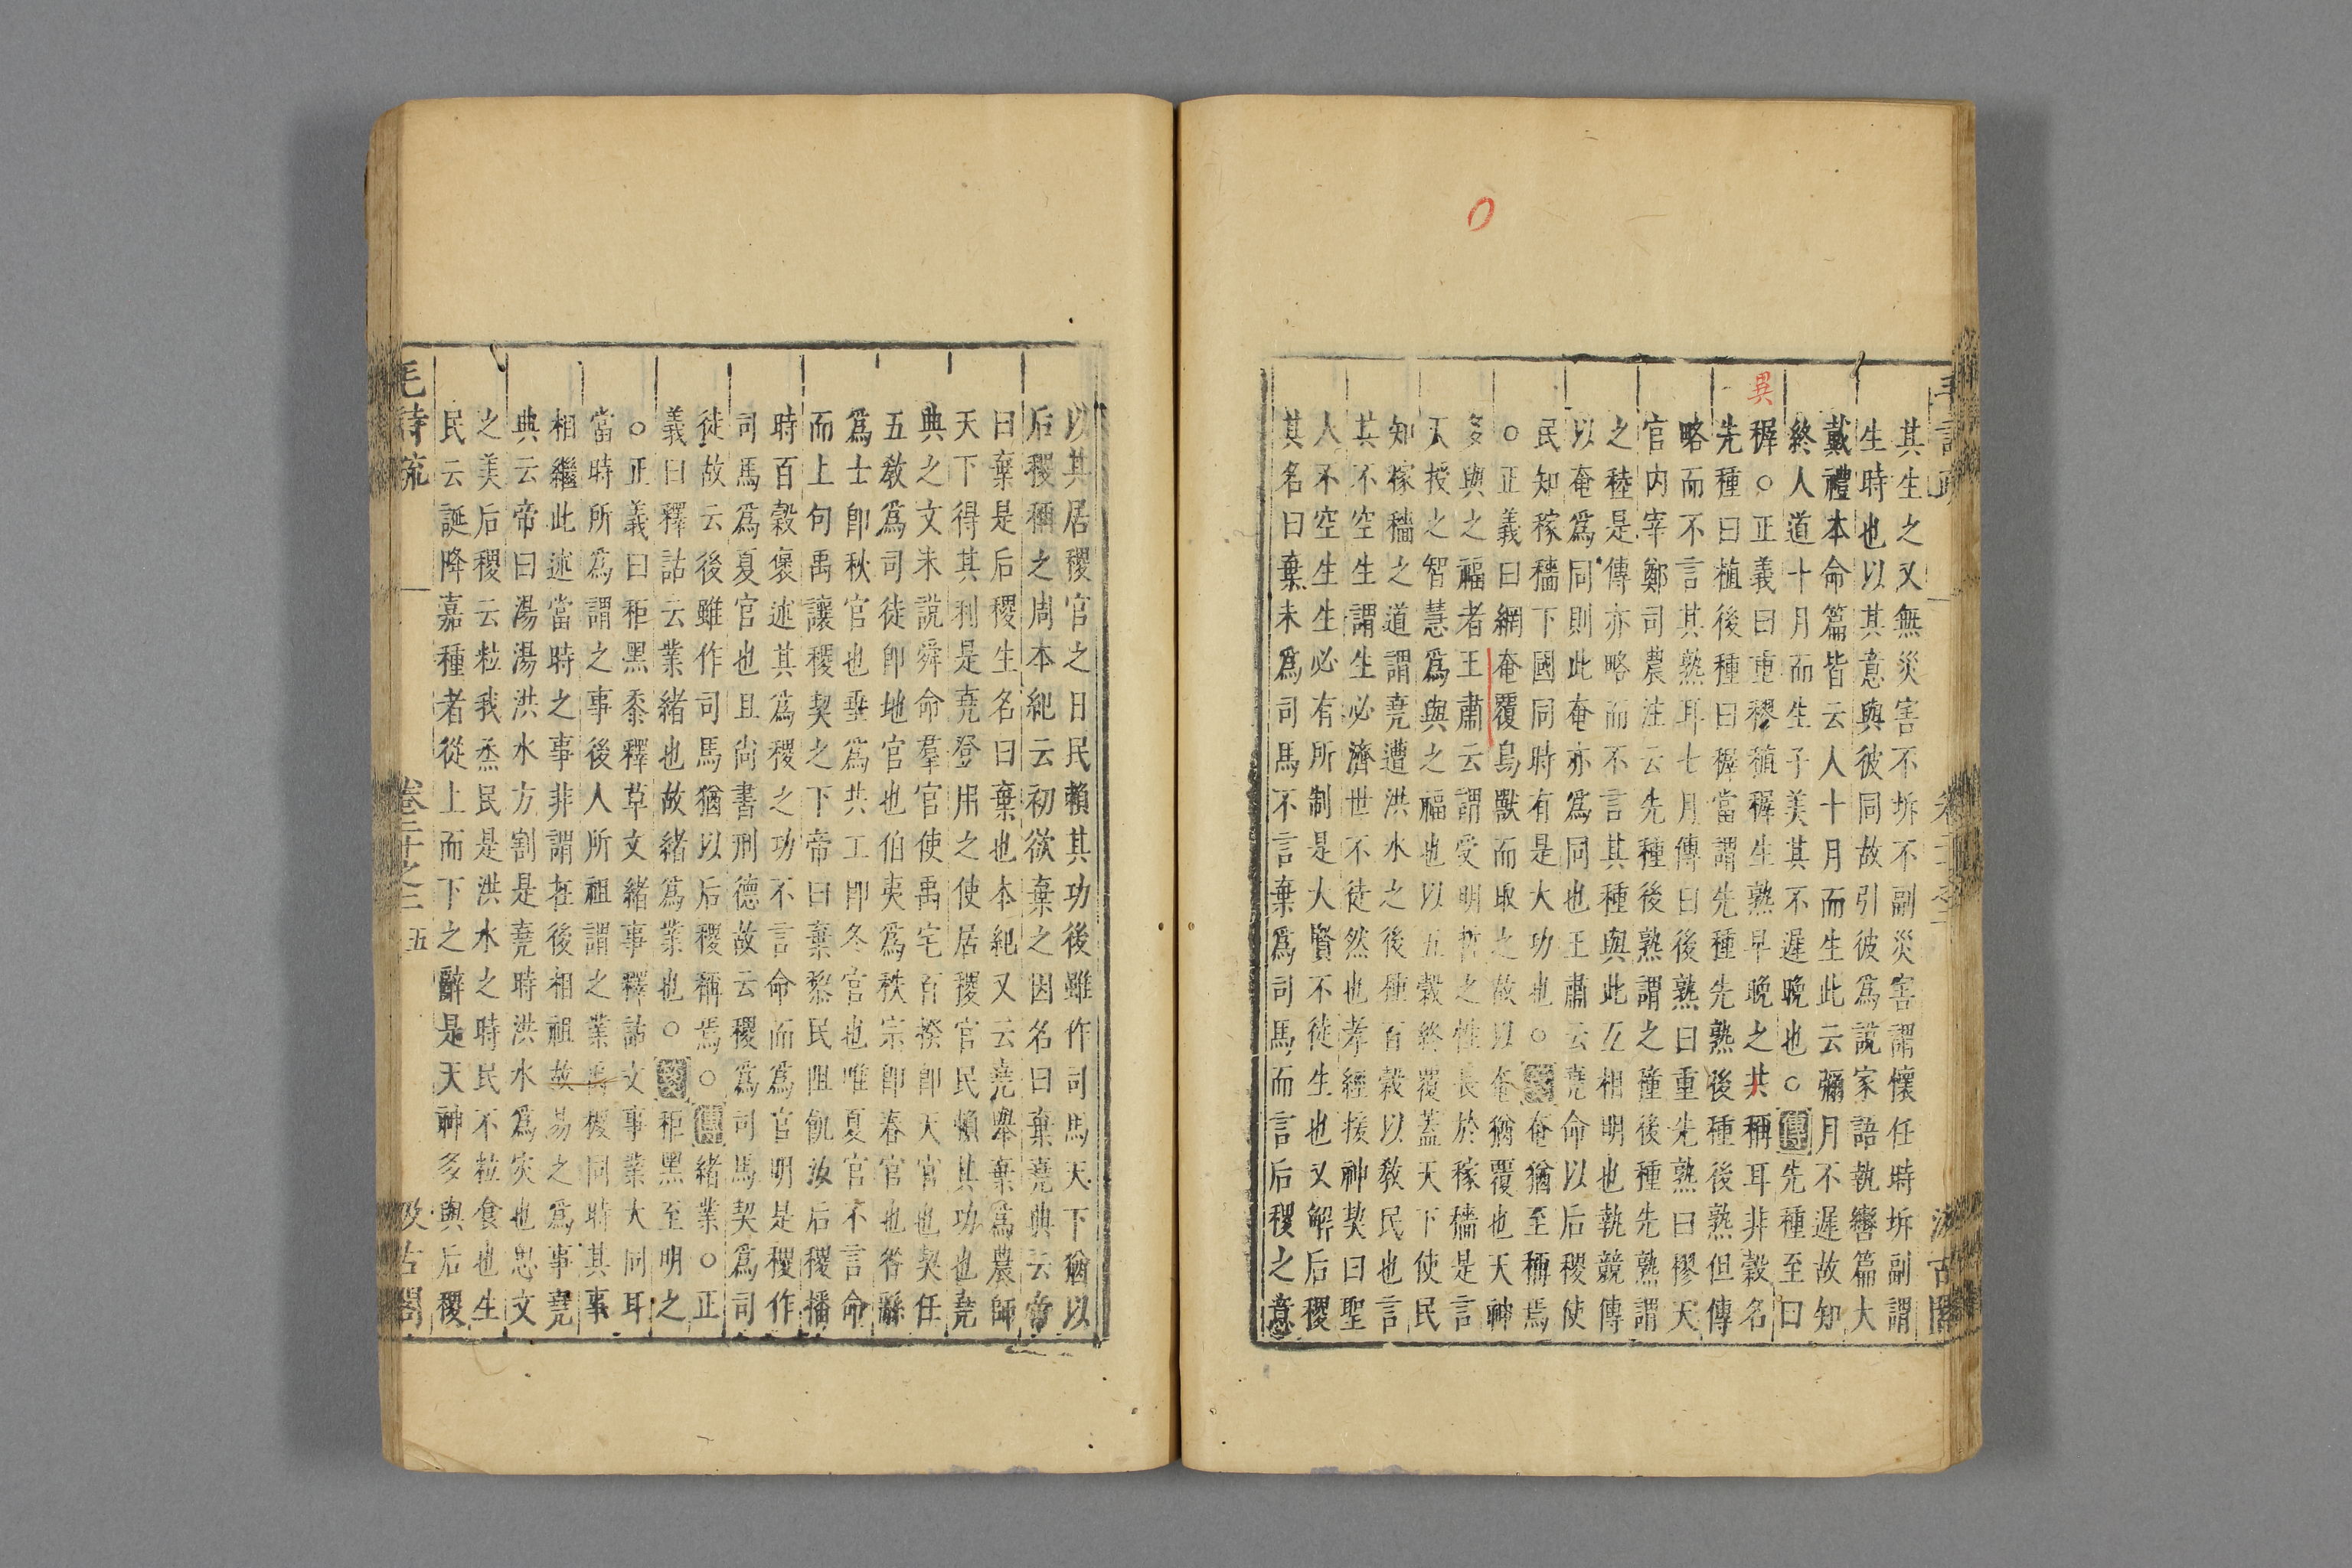 異
其生之又無災害不坼不副災害謂懷任時坼副謂
生時也以其意與彼同故引彼爲說家語執轡篇大
戴禮本命篇皆云人十月而生此云彌月不遲故知
終人道十月而生子美其不遲晚也○傳先種至曰
稺○正義曰重穋稙稺生熟早晚之共稱耳非穀名
先種曰稙後種曰稺當謂先種先熟後種後熟但傳
略而不言其熟耳七月傳曰後熟曰重先熟曰穋天
官内宰鄭司農注云先種後熟謂之穜後種先熟謂
之稑是傳亦略而不言其種與此互相明也執競傳
以奄爲同則此奄亦爲同也王肅云堯命以后稷使
民知稼穡下國同時有是大功也○箋奄猶至稱焉
○正義曰網奄覆鳥獸而取之故以奄猶覆也天神
多與之福者王肅云謂受明哲之性長於稼穡是言
天授之智慧爲與之福也以五穀終覆蓋天下使民
知稼穡之道謂堯遭洪水之後種百穀以敎民也言
其不空生謂生必濟世不徒然也孝經援神契曰聖
人不空生生必有所制是大賢不徒生也又解后稷
其名曰棄未爲司馬不言棄爲司馬而言后稷之意
以其居稷官之日民賴其功後雖作司馬天下猶以
后稷稱之周本紀云初欲棄之因名曰棄堯典云帝
曰棄是后稷生名曰棄也本紀又云堯舉棄爲農師
天下得其利是堯登用之使居稷官民賴其功也堯
典之文未說舜命羣官使禹宅百揆卽天官也契任
五敎爲司徒卽地官也伯夷爲秩宗卽春官也咎繇
爲士卽秋官也垂爲共工卽冬官也唯夏官不言命
而上句禹讓稷契之下帝曰棄黎民阻飢汝后稷播
時百穀褒述其爲稷之功不言命而爲官明是稷作
司馬爲夏官也且尚書刑德故云稷爲司馬契爲司
徒故云後雖作司馬猶以后稷稱焉○傳緒業○正
義曰釋詁云業緒也故緒爲業也○箋秬黑至明之
○正義曰秬黑黍釋草文緒事釋詁文事業大同耳
當時所爲謂之事後人所祖謂之業禹稷同時其事
相繼此述當時之事非謂在後相祖故易之爲事堯
典云帝曰湯湯洪水方割是堯時洪水爲災也思文
之美后稷云粒我烝民是洪水之時民不粒食也生
民云誕降嘉種者從上而下之辭是天神多與后稷
毛詩疏 卷二十之二 五 汲古閣